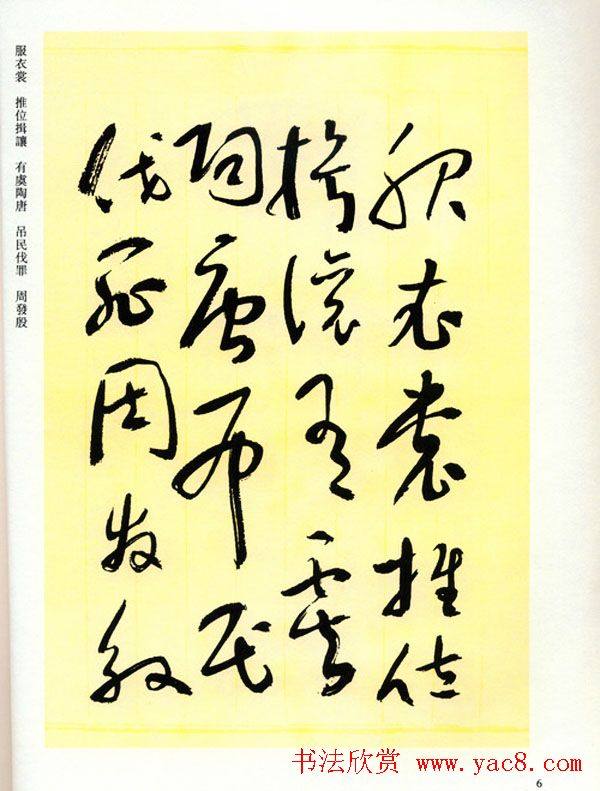 服衣裳　推位揖讓　有虞陶唐　吊民伐罪　周發殷
服衣裳推位
揖讓有虞
陶唐吊民
伐罪周發殷
书法欣赏 www.yac8.com
6